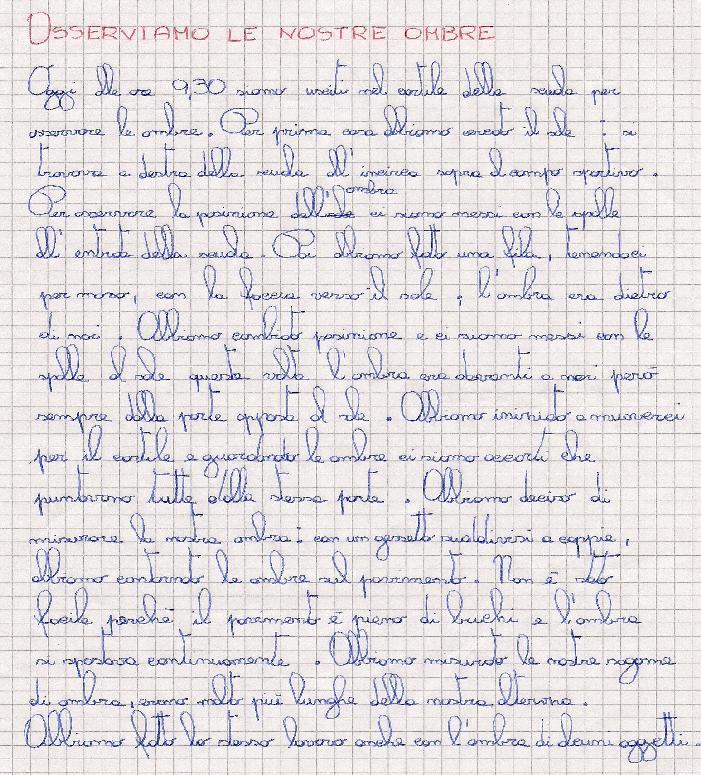 OSSERVIAMO LE NOSTRE OMBRE
Oggi alle ore 9,30 siamo usciti nel cortile della scuola per
osservare le ombre. Per prima cosa abbiamo cercato il sole : si
trovava a destra della scuola all'incirca sopra al campo sportivo.
Per osservare la posizione dell'ombra ci siamo messi con le spalle
all'entrata della scuola. Poi abbiamo fatto una fila, tenendoci
per mano, con la faccia verso il sole ; l'ombra era dietro
di noi. Abbiamo cambiato posizione e ci siamo messi con le
spalle al sole questa volta l'ombra era davanti a noi però
sempre dalla parte opposta al sole. Abbiamo iniziato a muoverci
per il cortile e guardando le ombre ci siamo accorti che
puntavano tutte dalla stessa parte. Abbiamo deciso di
misurare la nostra ombra: con un gessetto suddivisi a coppie,
abbiamo contornato le ombre sul pavimento. Non è stato
facile perchè il pavimento è pieno di buchi e l'ombra
si spostava continuamente. Abbiamo misurato le nostre sagome
di ombra, erano molto più lunghe della nostra altezza.
Abbiamo fatto lo stesso lavoro anche con l'ombra di alcuni oggetti.